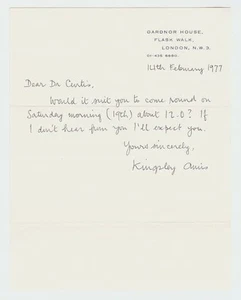 GARDNOR HOUSE,
FLASK WALK,
LONDON, N.W.3.
14th February 1977
Dear Dr Curtis,
Would it suit you to come round on
Saturday morning (19th) about 12.0? If
I don't hear from you I'll expect you.
Yours sincerely,
Kingsley Amis